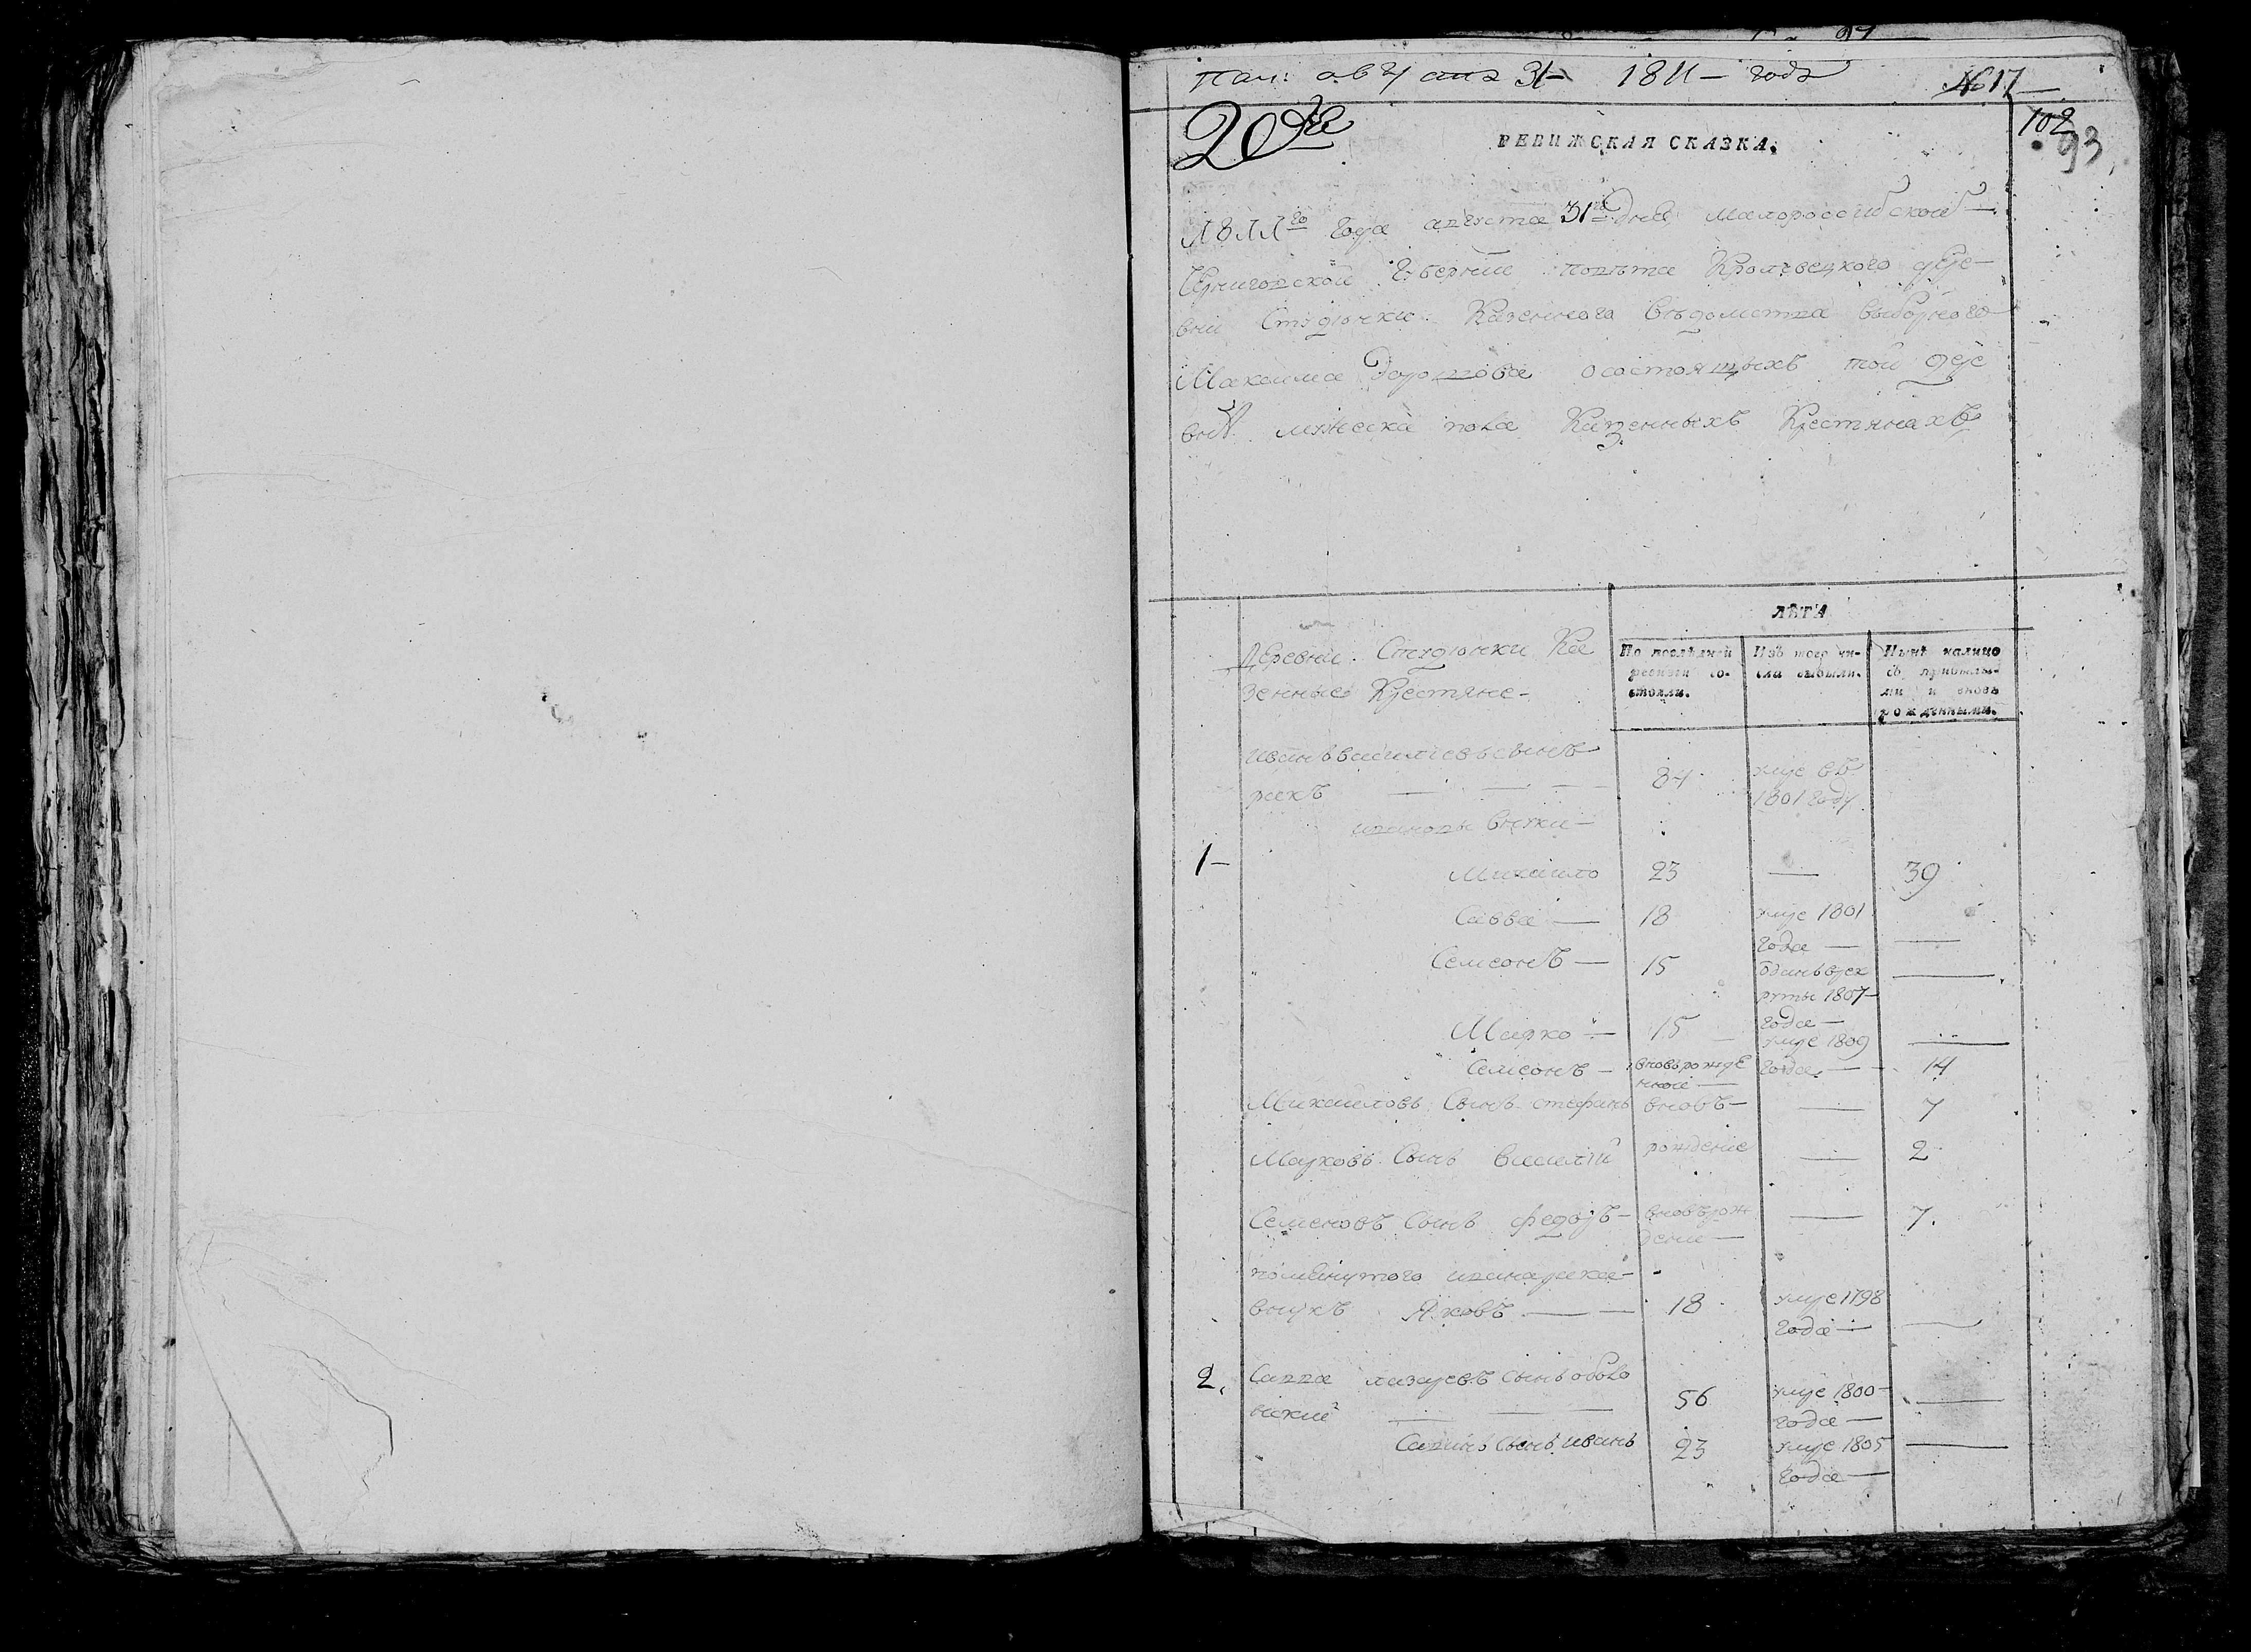 Пол: августа 31- 1811- года
№ 17
20
102
93
РЕВИЖСКАЯ СКАЗКА.
1811го года августа 31го дня малороссийской
Черниговской губернии повѣта Кролевецкого дере-
вни Студюнки Казенного вѣдомства выборного
Максима о состоящихъ той дере
вни мужеска пола Казенныхъ Крестянахъ
ЛѢТА
Деревни Студюнки Ка
зенные Крестяне-
По послѣдней ревизіи со-стояли.
Изъ того чи-сла выбыли.
Нынѣ налицо съ прибылы-ми и вновь рожденными.
иванъ василиевъ сынъ
рекъ 84 умре въ 1801 году
ивановы внуки
1- Михаило 23 — 39
Савва — 18 умре 1801 года — —
Семеонъ — 15 отданъ в рек руты 1807- года — —
Марко — 15 умре 1809 года — —
Семеонъ — вновь рожде нной — 14
Михаиловъ Сынъ стефанъ вновъ — — 7
Марковъ Сынъ василій рождение — 2
Семеновъ Сынъ федоръ — вновъ рож дение — — 7.
помянутого ивана река-
внукъ Яковъ — 18 умре 1798 года — —
2. Савва лазаревъ сынъ оболо
нский 56 умре 1800- года — —
Савинъ сынъ иванъ 23 умре 1805 года — —